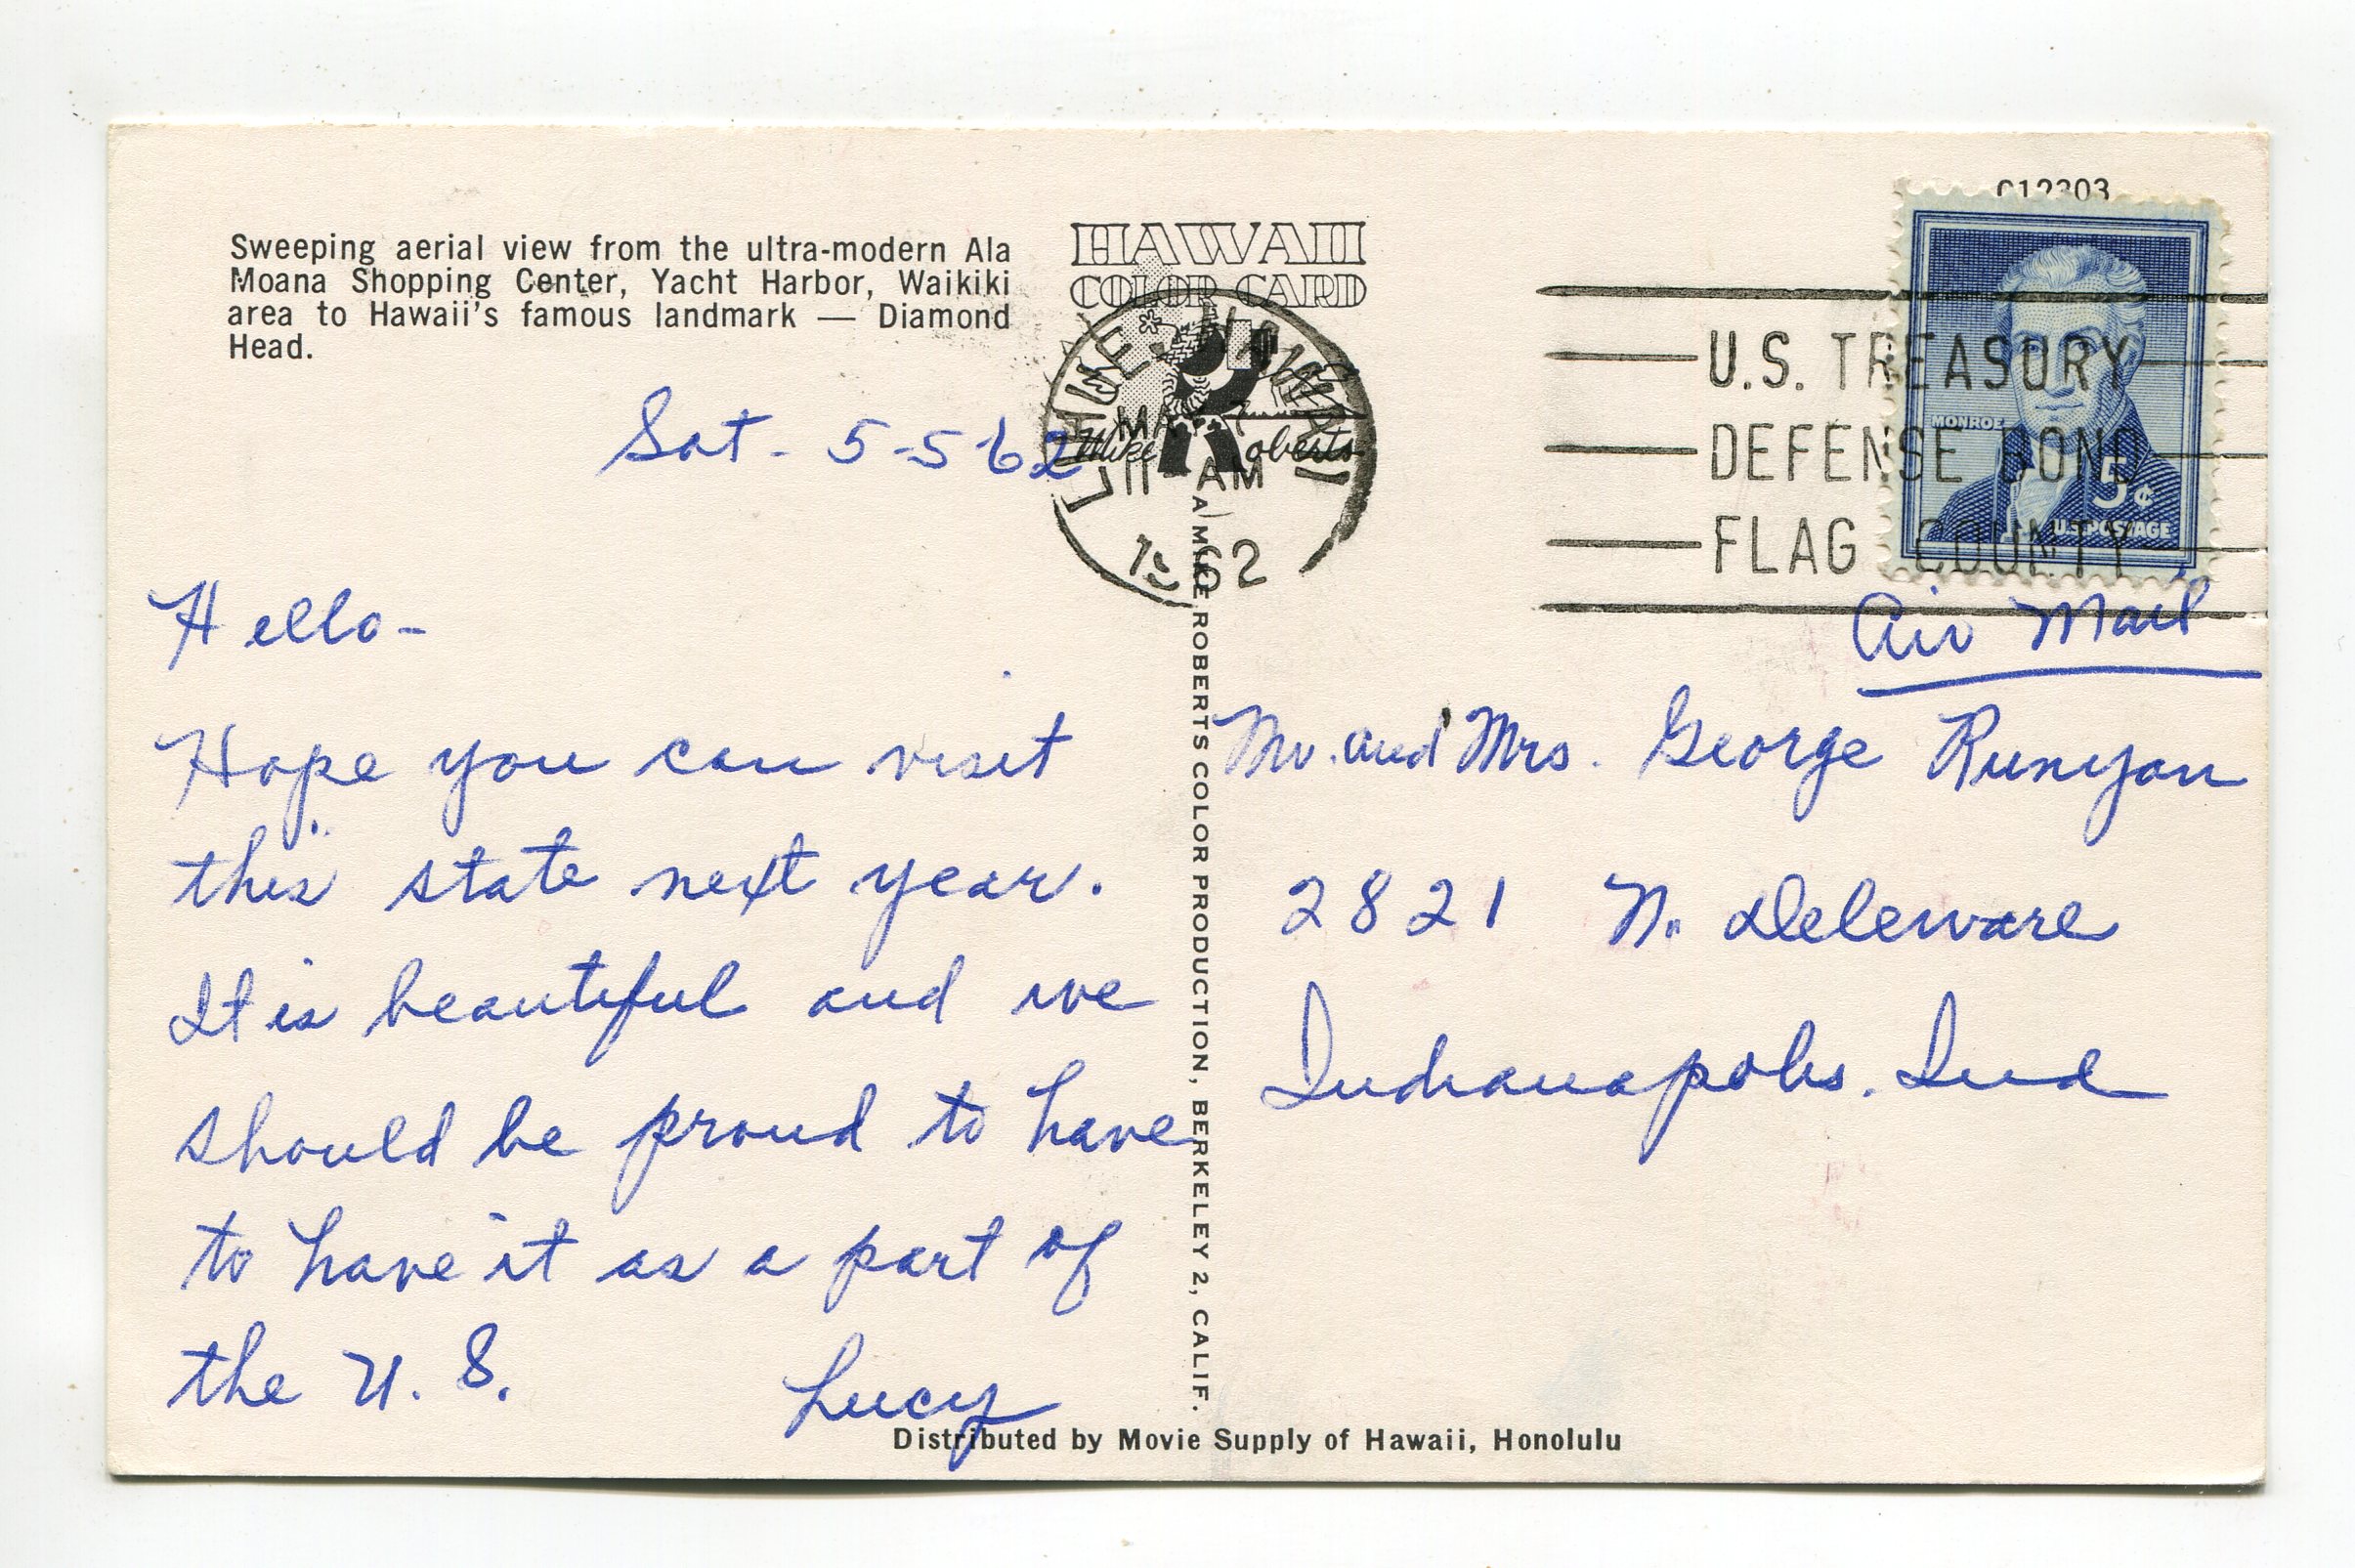 C12303
Sweeping aerial view from the ultra-modern Ala
Moana Shopping Center, Yacht Harbor, Waikiki
area to Hawaii's famous landmark — Diamond
Head.
HAWAII
COLOR CARD
Mike Roberts
LIHUE, HAWAII
MAY 7
11 AM
1962
U.S. TREASURY
DEFENSE BOND
FLAG COUNTY
MONROE
5¢
U.S. POSTAGE
Sat - 5-5 62
Hello-
Hope you can visit
this state next year.
It is beautiful and we
should be proud to have
to have it as a part of
the U. S.
Lucy
A MIKE ROBERTS COLOR PRODUCTION, BERKELEY 2, CALIF.
Air Mail
Mr. and Mrs. George Runyan
2821 N. Deleware
Indianapolis. Ind
Distributed by Movie Supply of Hawaii, Honolulu